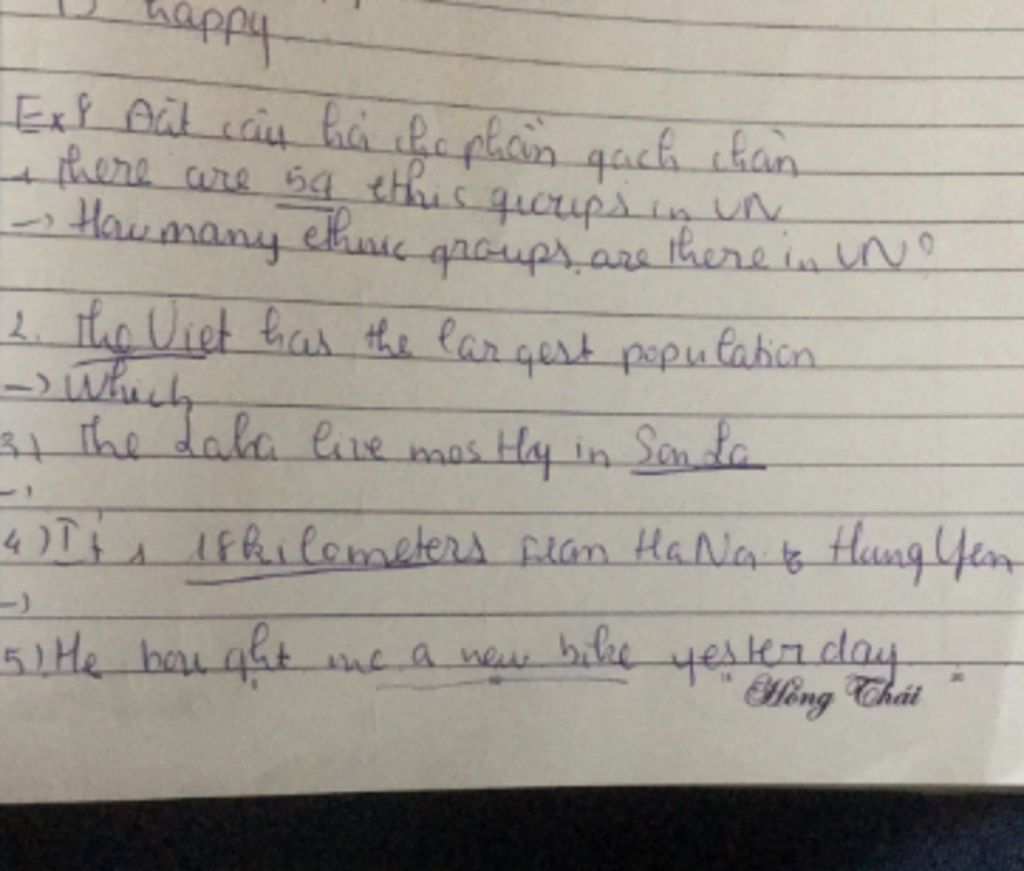 happy
Ex9 Đặt câu hỏi cho phần gạch chân
there are 54 ethic groups in VN
-> How many ethnic groups are there in VN?
2. The Viet has the largest population
-> Which
3) The Laha live mostly in Son La
->
4) It is 18 kilometers from Ha Noi to Hung Yen
->
5) He bought me a new bike yesterday
Hồng Thái